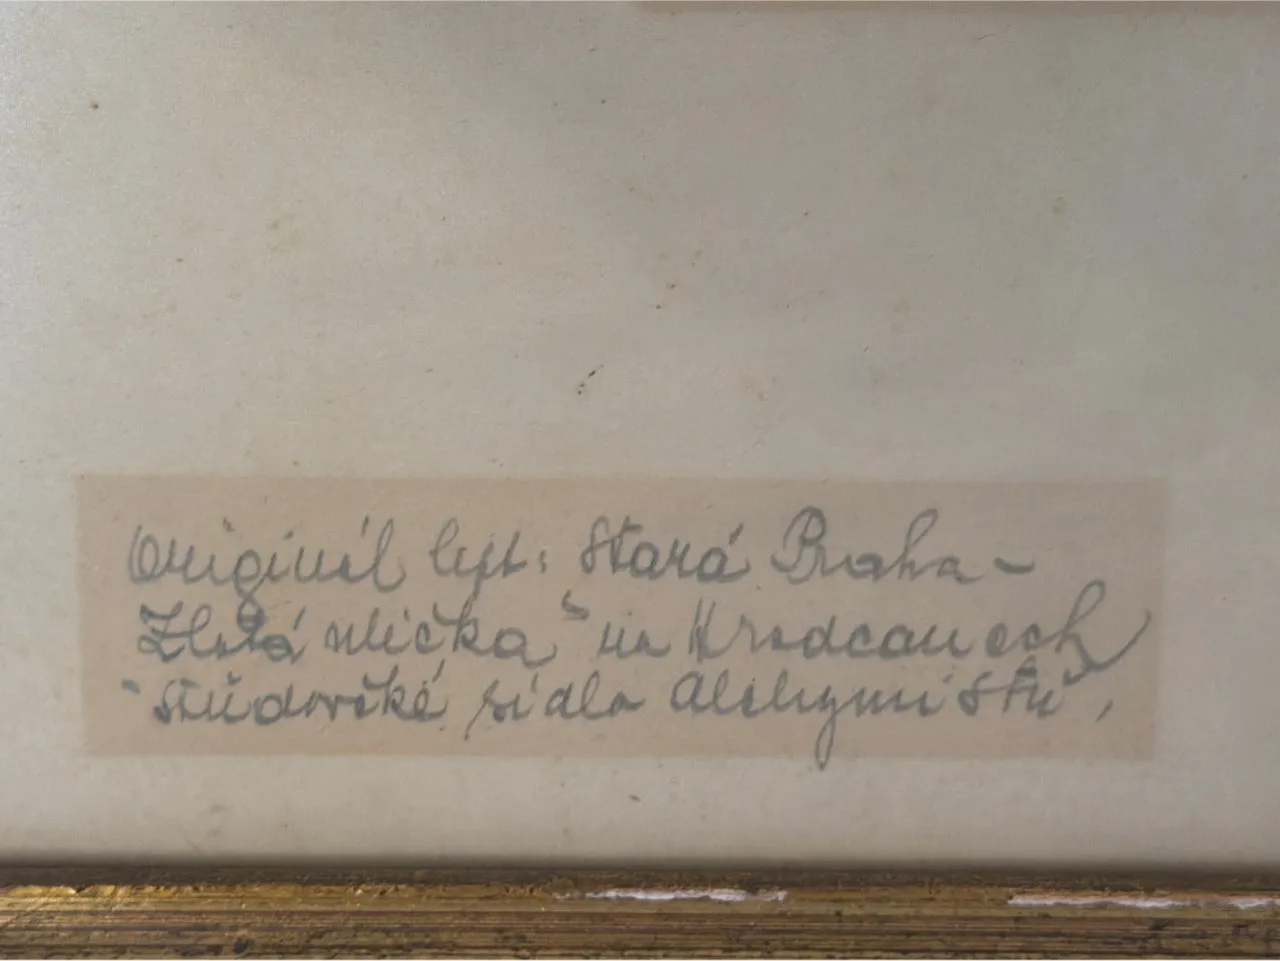 Originál lept: Stará Praha-
Zlatá ulička" na Hradcanech
středověké sídlo Alchymistů,